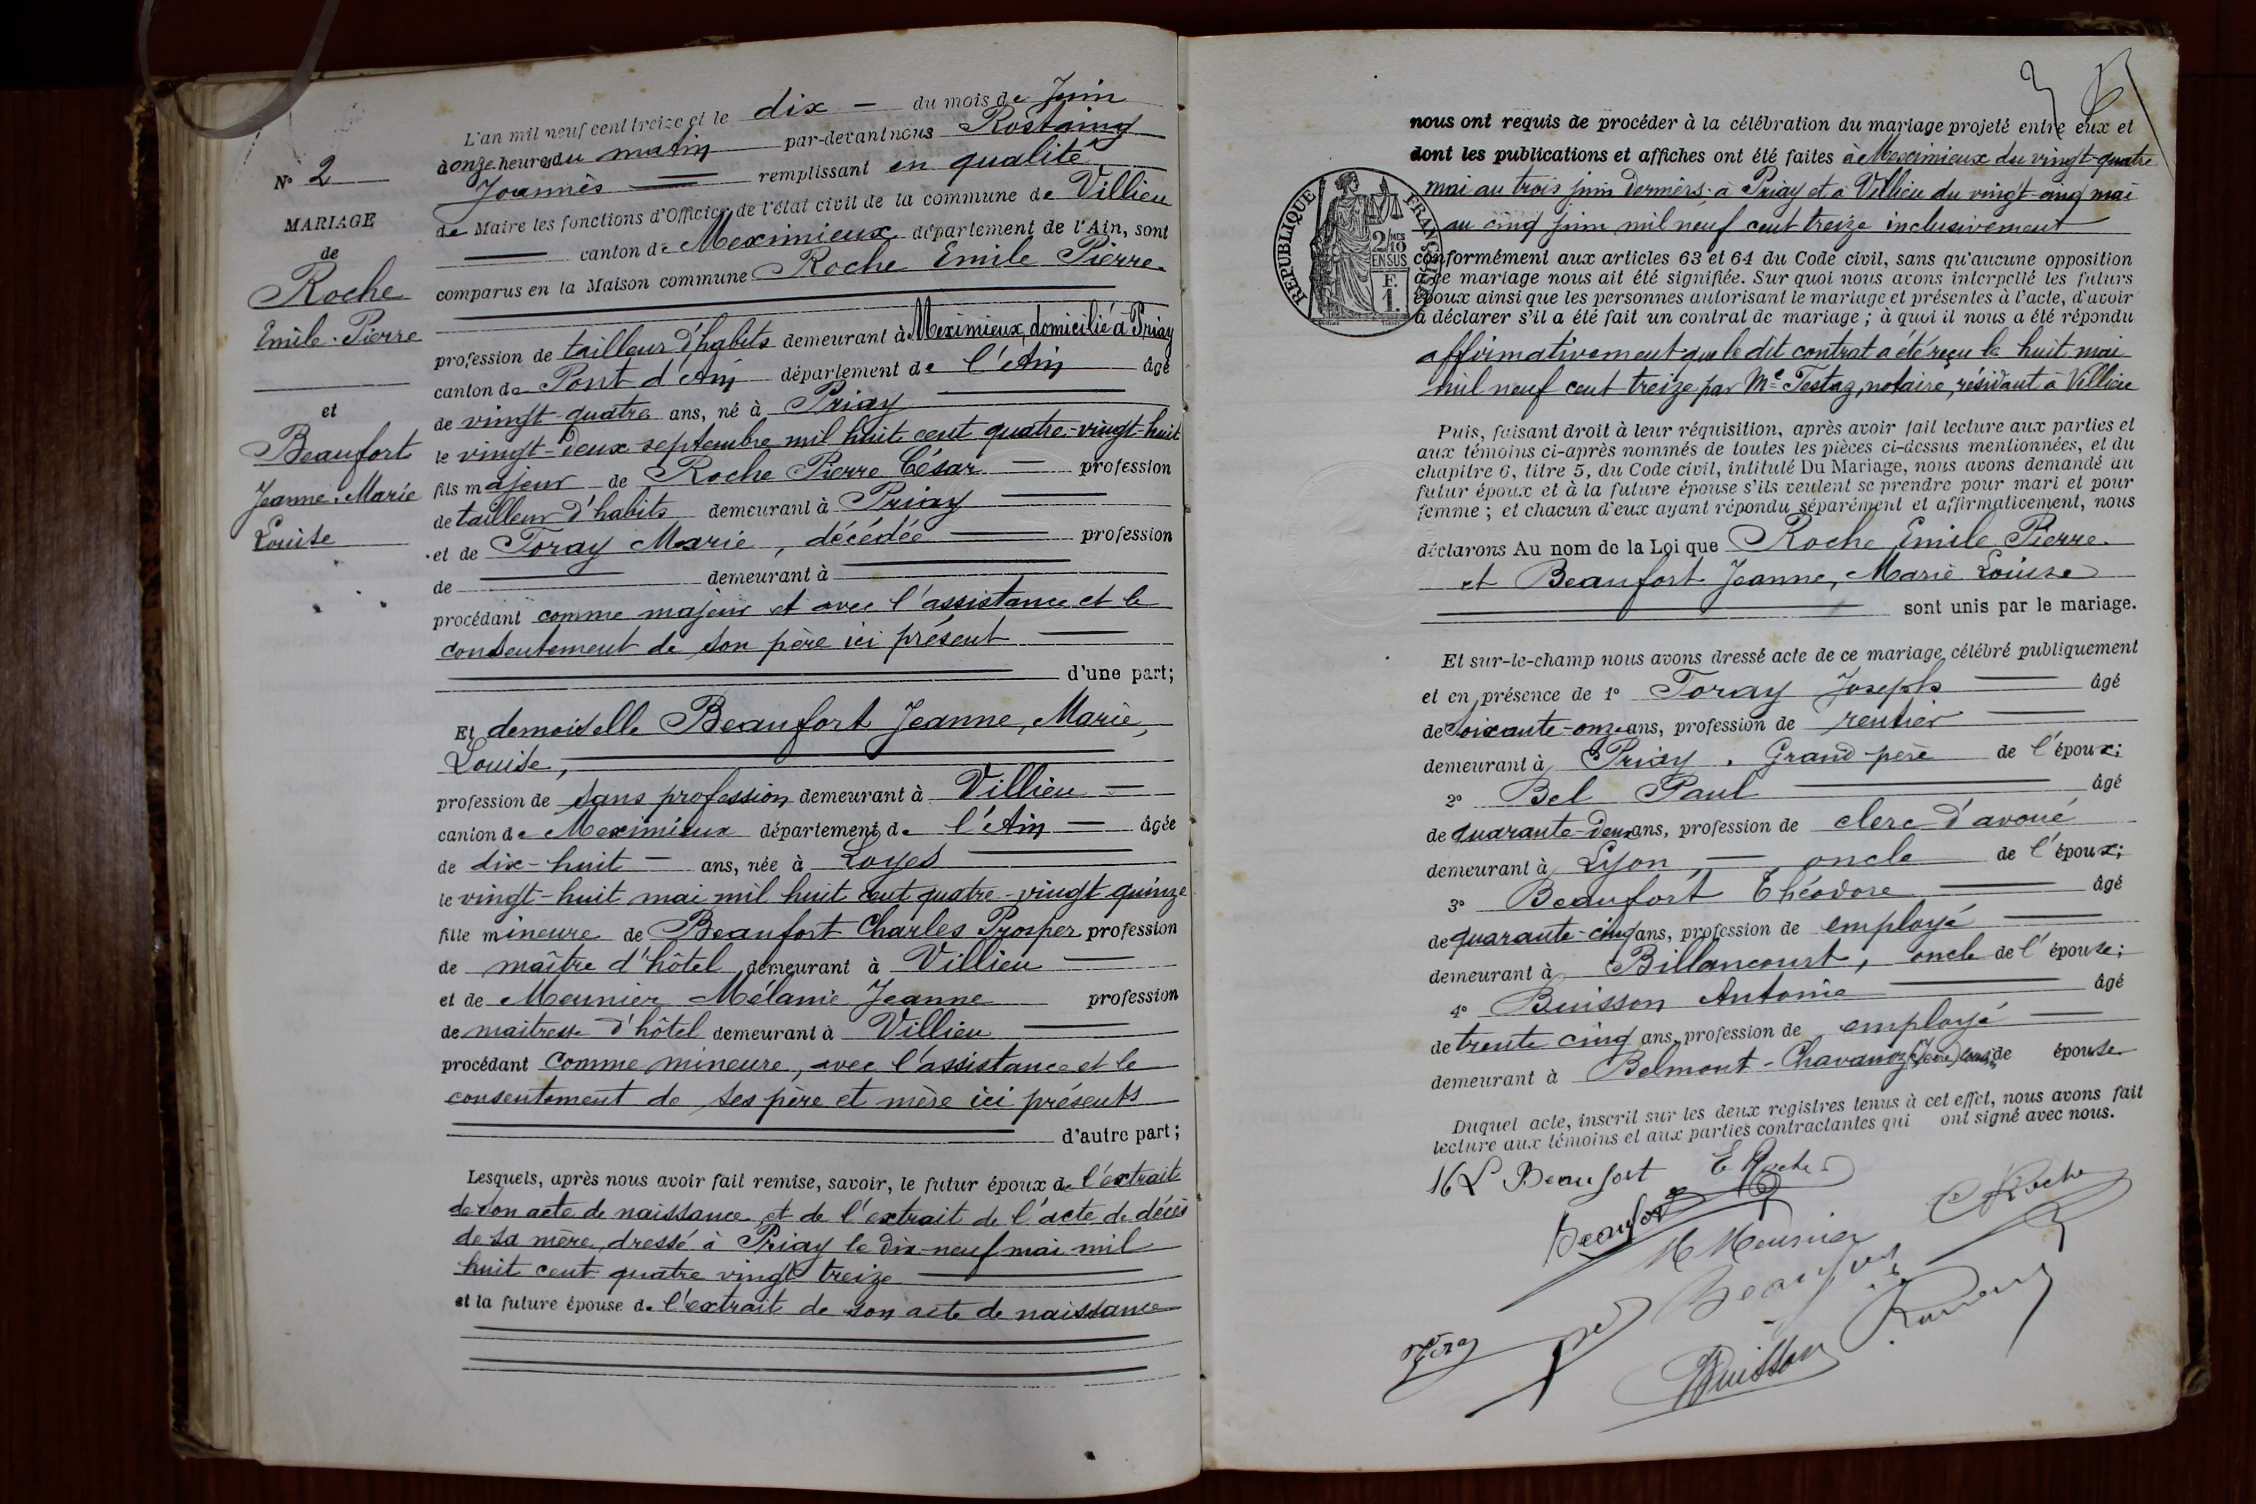 N° 2
MARIAGE
de
Roche
Emile-Pierre
et
Beaufort
Jeanne, Marie
Louise
L'an mil neuf cent treize et le dix du mois de Juin
à onze heures du matin par-devant nous Rostaing
Joannès remplissant en qualité
de Maire les fonctions d'Officier de l'état civil de la commune de Villieu
canton de Meximieux département de l'Ain, sont
comparus en la Maison commune Roche Emile Pierre
profession de tailleur d'habits demeurant à Meximieux, domicilié à Priay
canton de Pont d'Ain département de l'Ain âgé
de vingt-quatre ans, né à Priay
le vingt-deux septembre mil huit cent quatre-vingt-huit
fils majeur de Roche Pierre César profession
de tailleur d'habits demeurant à Priay
et de Toray Marie, décédée profession
de demeurant à
procédant comme majeur et avec l'assistance et le
consentement de son père ici présent
d'une part;
Et demoiselle Beaufort Jeanne, Marie,
Louise,
profession de sans profession demeurant à Villieu
canton de Meximieux département de l'Ain âgée
de dix-huit ans, née à Loyes
le vingt-huit mai mil huit cent quatre-vingt quinze
fille mineure de Beaufort Charles Prosper profession
de maître d'hôtel demeurant à Villieu
et de Meunier Mélanie Jeanne profession
de maitresse d'hôtel demeurant à Villieu
procédant comme mineure, avec l'assistance et le
consentement de ses père et mère ici présents
d'autre part;
Lesquels, après nous avoir fait remise, savoir, le futur époux de l'extrait
de son acte de naissance et de l'extrait de l'acte de décès
de sa mère, dressé à Priay le dix-neuf mai mil
huit cent quatre vingt treize
et la future épouse de l'extrait de son acte de naissance
nous ont requis de procéder à la célébration du mariage projeté entre eux et
dont les publications et affiches ont été faites à Meximieux du vingt-quatre
mai au trois juin derniers, à Priay et à Villieu du vingt-cinq mai
au cinq juin mil neuf cent treize inclusivement
RÉPUBLIQUE FRANÇAISE
2/10 MES
EN SUS
F.
1.
conformément aux articles 63 et 64 du Code civil, sans qu'aucune opposition
à ce mariage nous ait été signifiée. Sur quoi nous avons interpellé les futurs
époux ainsi que les personnes autorisant le mariage et présentes à l'acte, d'avoir
à déclarer s'il a été fait un contrat de mariage ; à quoi il nous a été répondu
affirmativement que le dit contrat a été reçu le huit mai
mil neuf cent treize par Me Testaz, notaire, résidant à Villieu
Puis, faisant droit à leur réquisition, après avoir fait lecture aux parties et
aux témoins ci-après nommés de toutes les pièces ci-dessus mentionnées, et du
chapitre 6, titre 5, du Code civil, intitulé Du Mariage, nous avons demandé au
futur époux et à la future épouse s'ils veulent se prendre pour mari et pour
femme ; et chacun d'eux ayant répondu séparément et affirmativement, nous
déclarons Au nom de la Loi que Roche Emile Pierre
et Beaufort Jeanne, Marie Louise
sont unis par le mariage.
Et sur-le-champ nous avons dressé acte de ce mariage célébré publiquement
et en présence de 1° Toray Joseph âgé
de soixante-onze ans, profession de rentier
demeurant à Priay, Grand-père de l'époux;
2° Bel Paul âgé
de quarante-deux ans, profession de clerc d'avoué
demeurant à Lyon, oncle de l'époux;
3° Beaufort Théodore âgé
de quarante-cinq ans, profession de employé
demeurant à Billancourt, oncle de l'épouse;
4° Buisson Antonie âgé
de trente cinq ans, profession de employé
demeurant à Belmont-Chavanoz (Isère) de épouse
Duquel acte, inscrit sur les deux registres tenus à cet effet, nous avons fait
lecture aux témoins et aux parties contractantes qui ont signé avec nous.
L Beaufort E Roche
Beaufort C Roche
M Meunier
Beaufort
Buisson